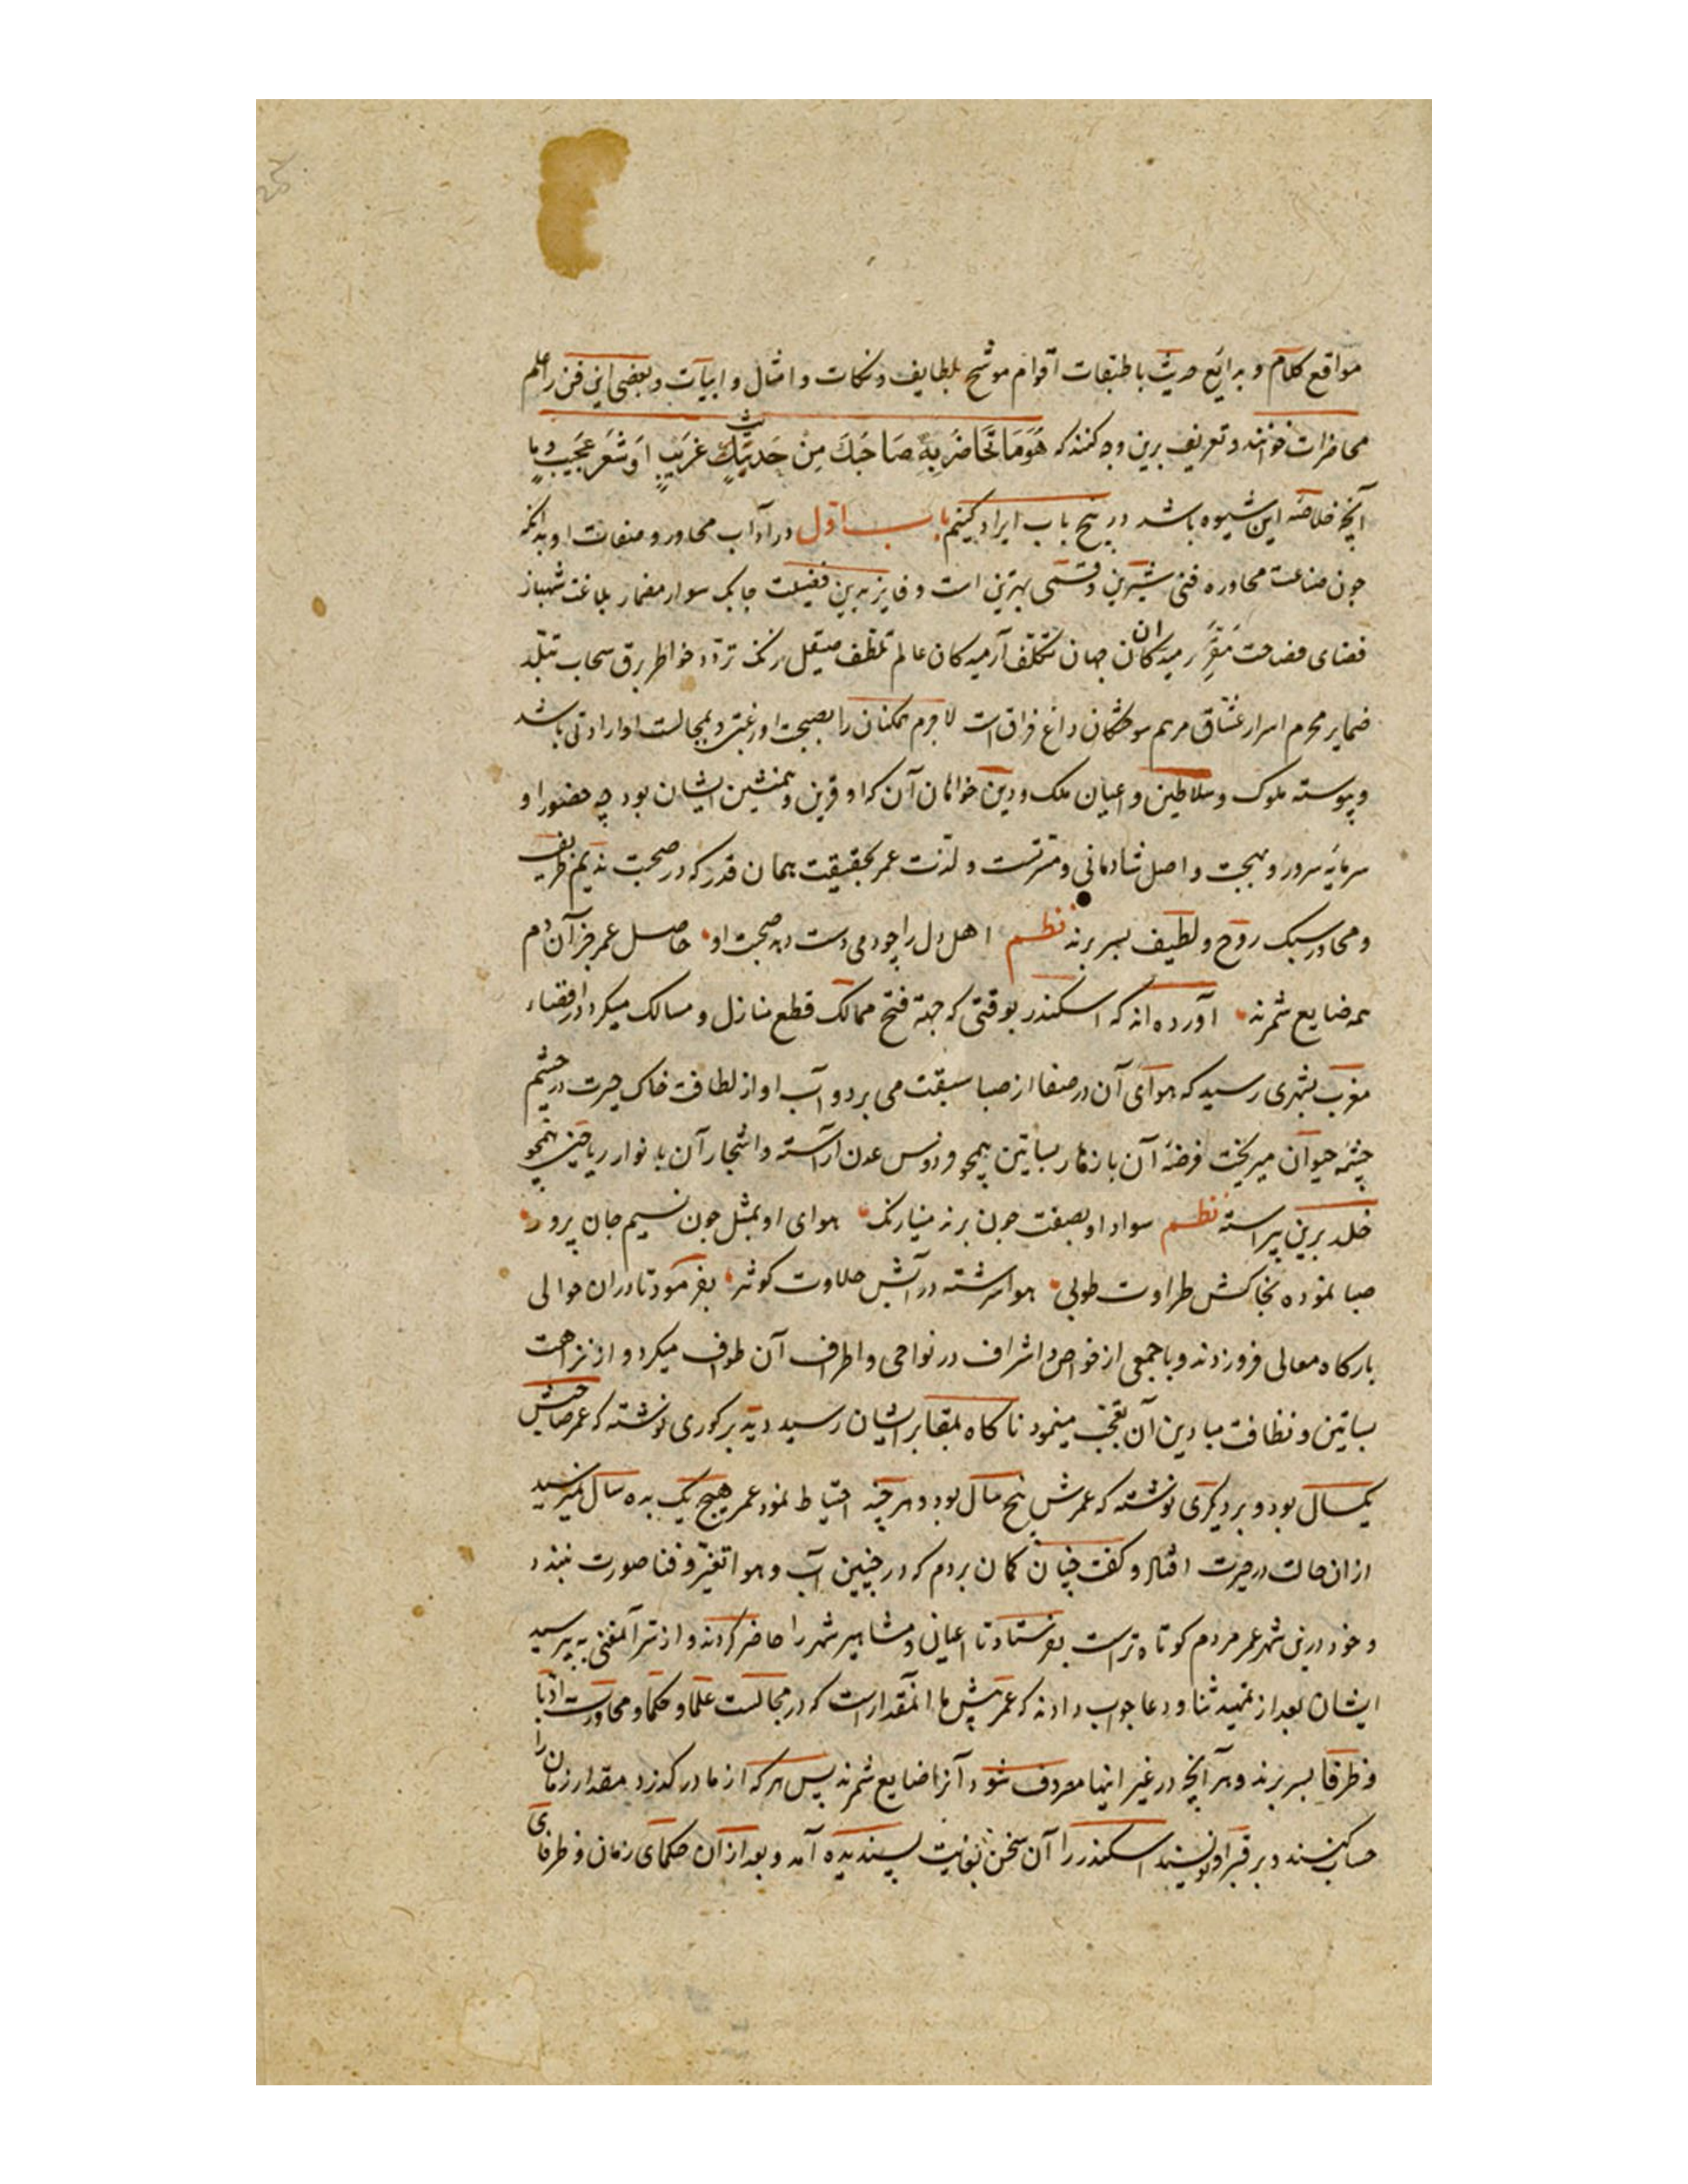 مواقع کلام و بدایع حدیث با طبقات اقوام موشح بلطایف و نکات و امثال و ابیات و بعضی این فن را علم
محاضرات خوانند و تعریف برین وجه کنند که هُوَ مَا تُحَاضَرُ بِهِ صَاحِبَكَ مِنْ حَدیثٍ غَرِیبٍ اَوْ شَعَرٍ عَجَیبٍ و ما
آنچه خلاصهٔ این شیوه باشد در پنج باب ایراد کنیم باب اول در آداب محاوره و صفات او بدانکه
جون صناعت محاوره فنی شیرین و قسمی بهترین است و فایز بدین فضیلت جابک سوار مضمار بلاغت شهباز
فضای فصاحت رمیدکان جهان تکلف آرمیدکان عالم تلطف صیقل زنک تردد خواطر برق سحاب تبلد
ضمایر محرم اسرار عشاق مرهم سوختکان داغ فراق است لاجرم همکنان را بصحبت او رغبتی و بمجالست او ارادتی باشد
و پیوسته ملوک و سلاطین و اعیان ملک و دین خواهان آن که او قرین و همنشین ایشان بود چه حضور او
سرمایهٔ سرور و بهجت و اصل شادمانی و مسرتست و لذت عمر بحقیقت همان قدر که در صحبت ندیم ظریف
و محاور سبک روح و لطیف بسر برند نظم اهل دل را چو دمی دست دهد صحبت او حاصل عمر جز آن دم
همه ضایع شمرند آورده اند که اسکندر بوقتی که جهة فتح ممالک قطع منازل و مسالک میکرد در اقصاء
مغرب بشهری رسید که هوای آن در صفا از صبا سبقت می برد و آب او از لطافت خاک حیرت در چشم
چشمه حیوان میریخت عرضهٔ آن بازهار بساتین همچو فردوس عدن آراسته و اشجار آن بانوار ریاحین همچو
خلد برین پیراسته نظم سواد او بصفت جون برند مینا رنک هوای او بمثل جون نسیم جان پرور
صبا نموده بخاکش طراوت طوبی هوا سرشته در آبش حلاوت کوثر بفرمود تا دران حوالی
بارکاه معالی فرو زدند و با جمعی از خواص و اشراف در نواحی و اطراف آن طواف میکرد و از نزاهت
بساتین و نظافت میادین آن تعجب مینمود ناکاه بمقابر ایشان رسید دید بر کوری نوشته که عمر صاحبش
یکسال بود و بر دیکری نوشته که عمرش پنج سال بود و هر چند احتیاط نمود عمر هیچ یک بده سال نمیرسید
ازان حالت در حیرت افتاد و کفت چنان کمان بردم که در چنین آب و هوا تغیر و فنا صورت نبندد
و خود درین شهر عمر مردم کوتاه تر است بفرستاد تا اعیان و مشاهیر شهر را حاضر کردند و از سر آن معنی بپرسید
ایشان بعد از تمهید ثنا و دعا جواب دادند که عمر پیش ما آنمقدار است که در مجالست علما و حکما و محاورت ادبا
و ظرفا بسر برند و هر آنچه در غیر اینها مصروف شود آنرا ضایع شمرند پس هر که از ما در کذرد مقدار زمان را
حساب کنند و بر قبر او نویسند اسکندر را آن سخن بغایت پسندیده آمد و بعد ازان حکمای زمان و ظرفای